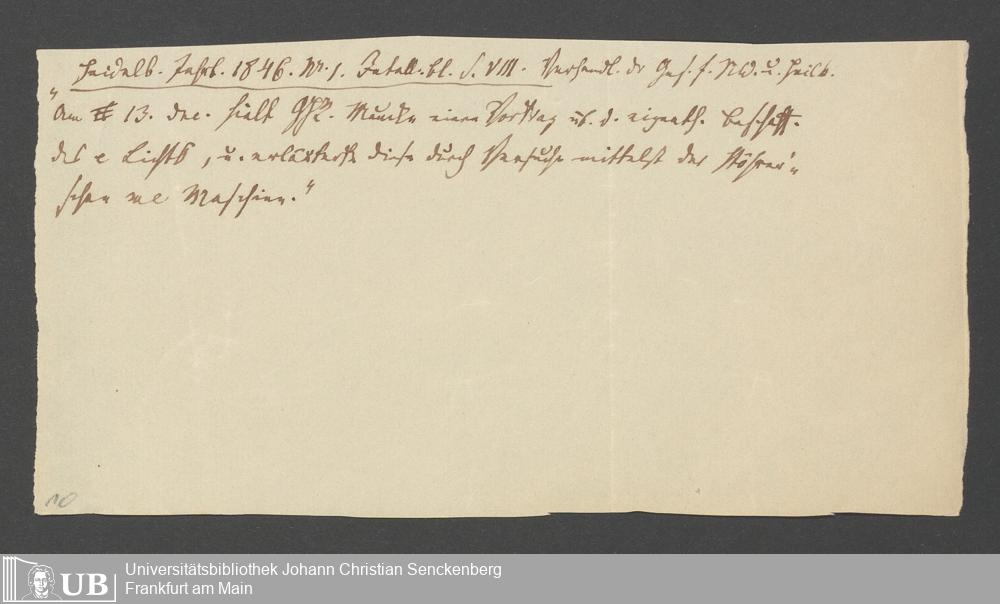 Heidelb. Jahrb. 1846. Nr. 1. Intell. bl. S. VIII. Verhandl. dr Ges. f. NW. u. Heilk.
"Am 13. Dec. hielt Muncke einen Vortrag üb. d. eigenth. Beschaff.
des e Lichts, u. erläuterte diese durch Versuche mittelst der Stöhrer'
schen me Maschine."
10
UB
Universitätsbibliothek Johann Christian Senckenberg
Frankfurt am Main